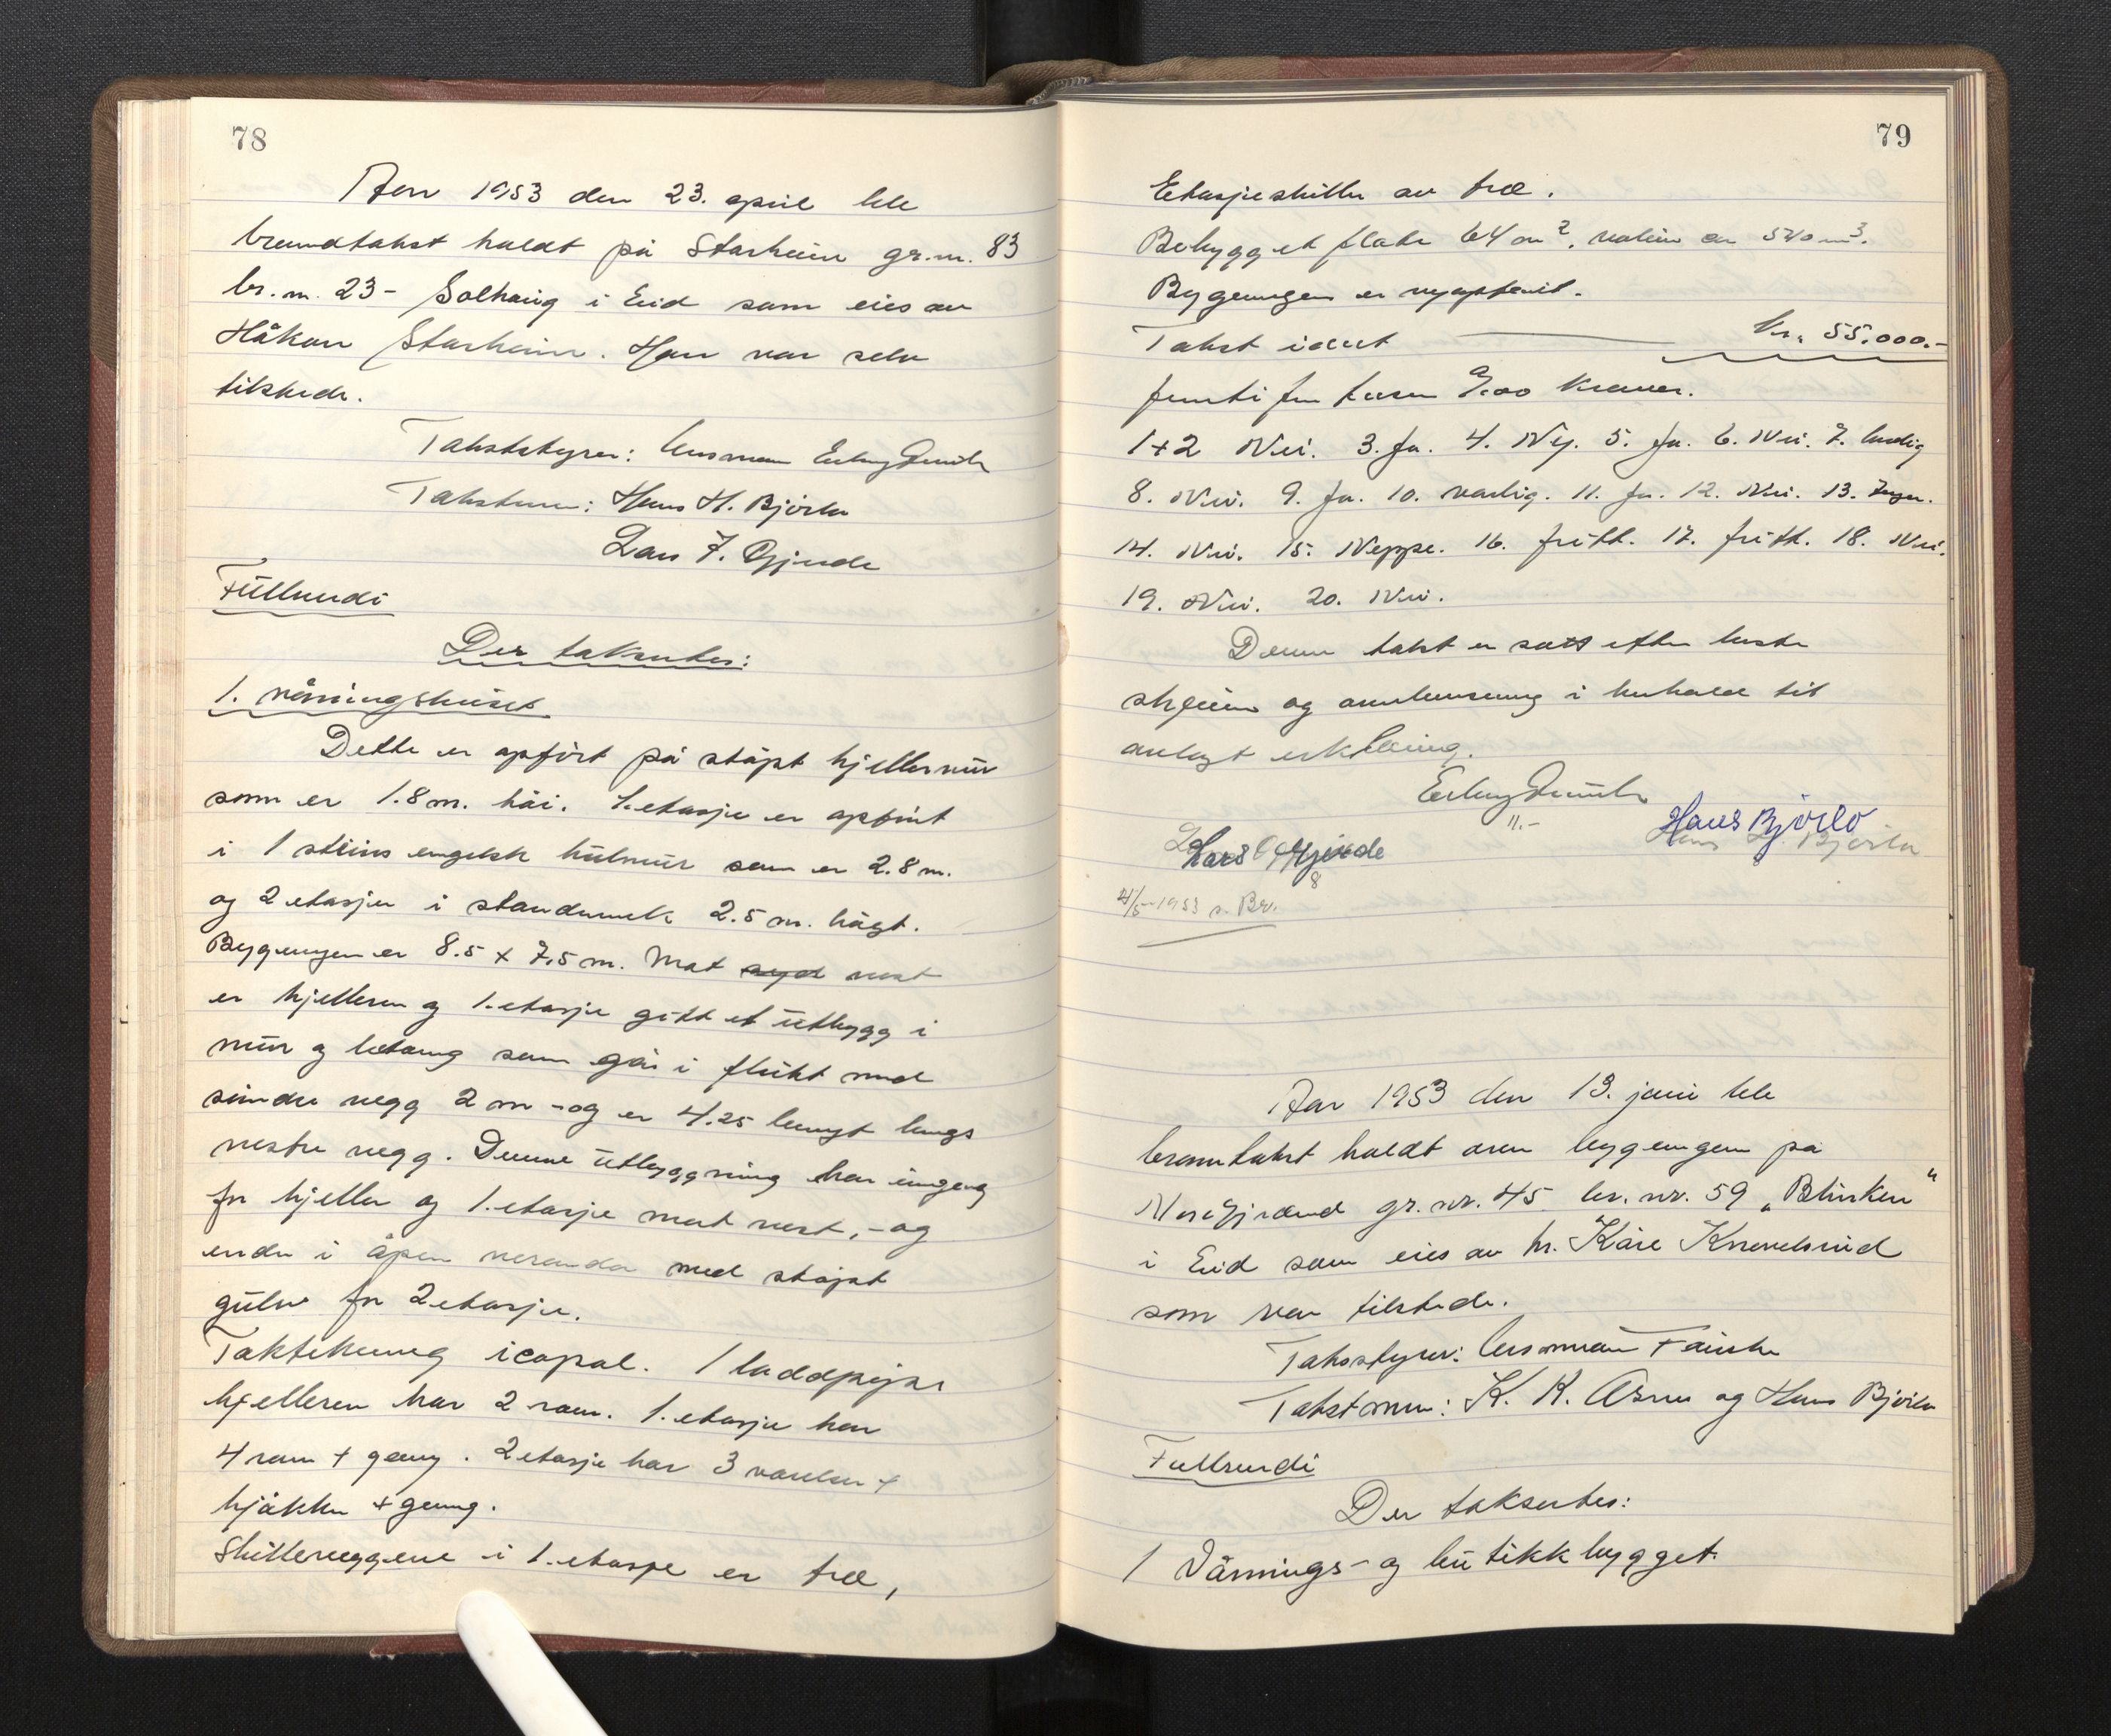 78
Aar 1953 den 23. april ble
branntakst holdt på Starheim gr.nr. 83
br.nr. 23 - Solhaug i Eid som eies av
Håkon Starheim. Han var selv
tilstede.
Takststyrer: lensmann
Takstmenn: Hans H. Bjørlo
Lars J. Gjerde
Fullverdi
Der taksertes:
1. våningshuset
Dette er opført på støpt kjellermur
som er 1.8 m. høi. 1. etasje er opført
i 1 steins engelsk hulmur som er 2.8 m.
og 2 etasjer i standerverk 2.5 m. høgt.
Bygningen er 8.5 x 7.5 m. Mot syd vest
er kjelleren og 1. etasje gitt et utbygg i
mur og betong som går i flukt med
søndre vegg 2 m - og er 4.25 lengt langs
vestre vegg. Denne utbyggning har inngang
for kjeller og 1. etasje mot vest, - og
ender i åpen veranda med støpt
gulv for 2 etasje.
Taktekning icopal. 1 luddpipe
kjelleren har 2 rom. 1. etasje har
4 rom + gang. 2 etasje har 3 værelser +
kjøkken + gang.
Skilleveggene i 1. etasje er træ,
79
Etasjeskiller av træ.
Bebygget flate 64 m². volum ca 540 m³.
Bygningen er nyoppført.
Takst idut kr. 55.000.-
femti fem tusen 0/00 kroner.
1+2 Nei. 3. Ja. 4. Ny. 5. Ja. 6. Nei. 7.
8. Nei. 9. Ja. 10. vanlig. 11. Ja. 12. Nei. 13. Ingen.
14. Nei. 15. Neppe. 16. fritt. 17. fritt. 18. Nei.
19. Nei. 20. Nei.
Denne takst er satt efter beste
skjønn og overbevisning i henhold til
avlagt erklæring.
11.-
Hans Bjørlo
Hans H. Bjørlo
Lars Gjerde
8
4/5-1953 s. Br.
Aar 1953 den 13. juni ble
branntakst holdt over bygningen på
gr. nr. 45 br. nr. 59 „Blinken"
i Eid som eies av hr. Kåre Knevelsrud
som var tilstede.
Takststyrer: lensmann
Takstmenn: K. K. og Hans Bjørlo
Fullverdi
Der taksertes:
1 Vånings- og butikkbygget.